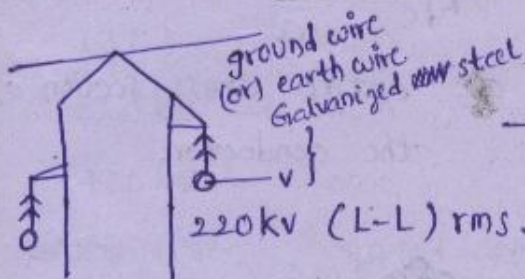 ground wire
(or) earth wire
Galvanized steel
V }
220kv (L-L) rms.